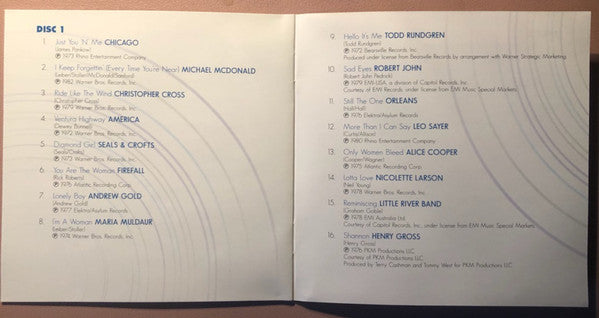 DISC 1
1. Just You 'N' Me CHICAGO
(James Pankow)
℗ 1973 Rhino Entertainment Company
2. I Keep Forgettin' (Every Time You're Near) MICHAEL MCDONALD
(Leiber/Stoller/McDonald/Sanford)
℗ 1982 Warner Bros. Records, Inc.
3. Ride Like The Wind CHRISTOPHER CROSS
(Christopher Cross)
℗ 1979 Warner Bros. Records, Inc.
4. Ventura Highway AMERICA
(Dewey Bunnell)
℗ 1972 Warner Bros. Records, Inc.
5. Diamond Girl SEALS & CROFTS
(Seals/Crofts)
℗ 1973 Warner Bros. Records, Inc.
6. You Are The Woman FIREFALL
(Rick Roberts)
℗ 1976 Atlantic Recording Corp.
7. Lonely Boy ANDREW GOLD
(Andrew Gold)
℗ 1977 Elektra/Asylum Records
8. I'm A Woman MARIA MULDAUR
(Leiber-Stoller)
℗ 1974 Warner Bros. Records, Inc.
9. Hello It's Me TODD RUNDGREN
(Todd Rundgren)
℗ 1972 Bearsville Records, Inc.
Produced under license from Bearsville Records by arrangement with Warner Strategic Marketing
10. Sad Eyes ROBERT JOHN
(Robert John Pedrick)
℗ 1979 EMI-USA, a division of Capitol Records, Inc.
Courtesy of EMI Records under license from EMI Music Special Markets
11. Still The One ORLEANS
(Hall/Hall)
℗ 1976 Elektra/Asylum Records
12. More Than I Can Say LEO SAYER
(Curtis/Allison)
℗ 1980 Rhino Entertainment Company
13. Only Women Bleed ALICE COOPER
(Cooper/Wagner)
℗ 1975 Atlantic Recording Corp.
14. Lotta Love NICOLETTE LARSON
(Neil Young)
℗ 1978 Warner Bros. Records, Inc.
15. Reminiscing LITTLE RIVER BAND
(Graham Goble)
℗ 1978 EMI Australia Ltd.
Courtesy of Capitol Records, Inc. under license from EMI Music Special Markets
16. Shannon HENRY GROSS
(Henry Gross)
℗ 1976 PKM Productions LLC
Courtesy of PKM Productions LLC
Produced by Terry Cashman and Tommy West for PKM Productions LLC